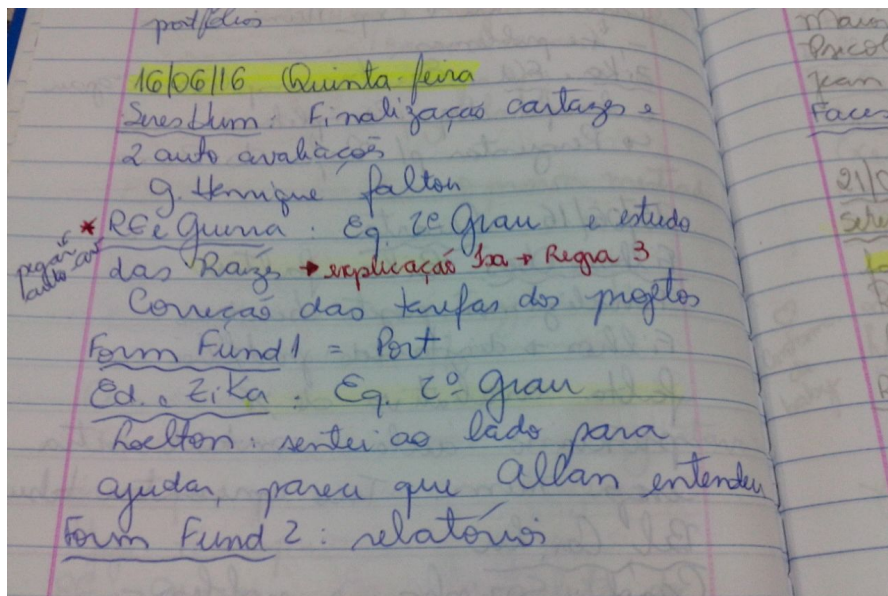 portfólios
16/06/16 Quinta-feira
Seres Hum: Finalização cartazes e
2 auto avaliações
G. Henrique faltou
* RE e Guerra. Eq. 2º Grau e estudo
das Raízes → explicação → Regra 3
Correção das tarefas dos projetos
Form Fund 1 = Port
Ed. e Zika. Eq. 2º grau
: sentei ao lado para
ajudar, pareceu que Allan entendeu
Form Fund 2: relatórios
pegar
auto
21/0
Sere